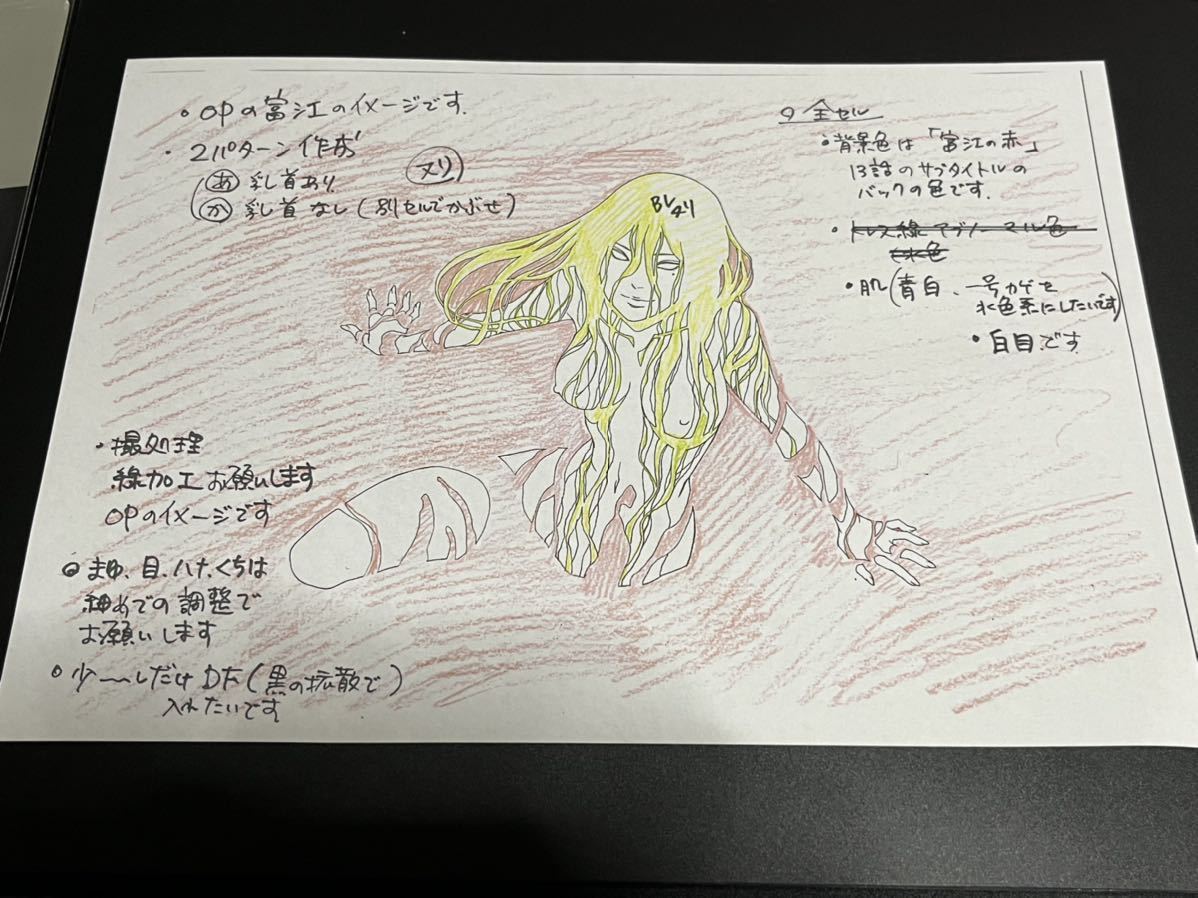 ・OPの富江のイメージです.
・2パターン作成
あ 乳首あり
か 乳首なし(別セルでかぶせ)
ヌリ
BLヌリ
全セル
・背景色は「富江の赤」
13話のサブタイトルの
バックの色です.
・トレス線 アブノーマル色
・肌(青白、一号カゲを
水色系にしたいです)
・白目です
・撮処理
線加工お願いします
OPのイメージです
まゆ、目、ハナ、くちは
細めでの調整で
お願いします
少〜〜しだけDF(黒の拡散で)
入れたいです